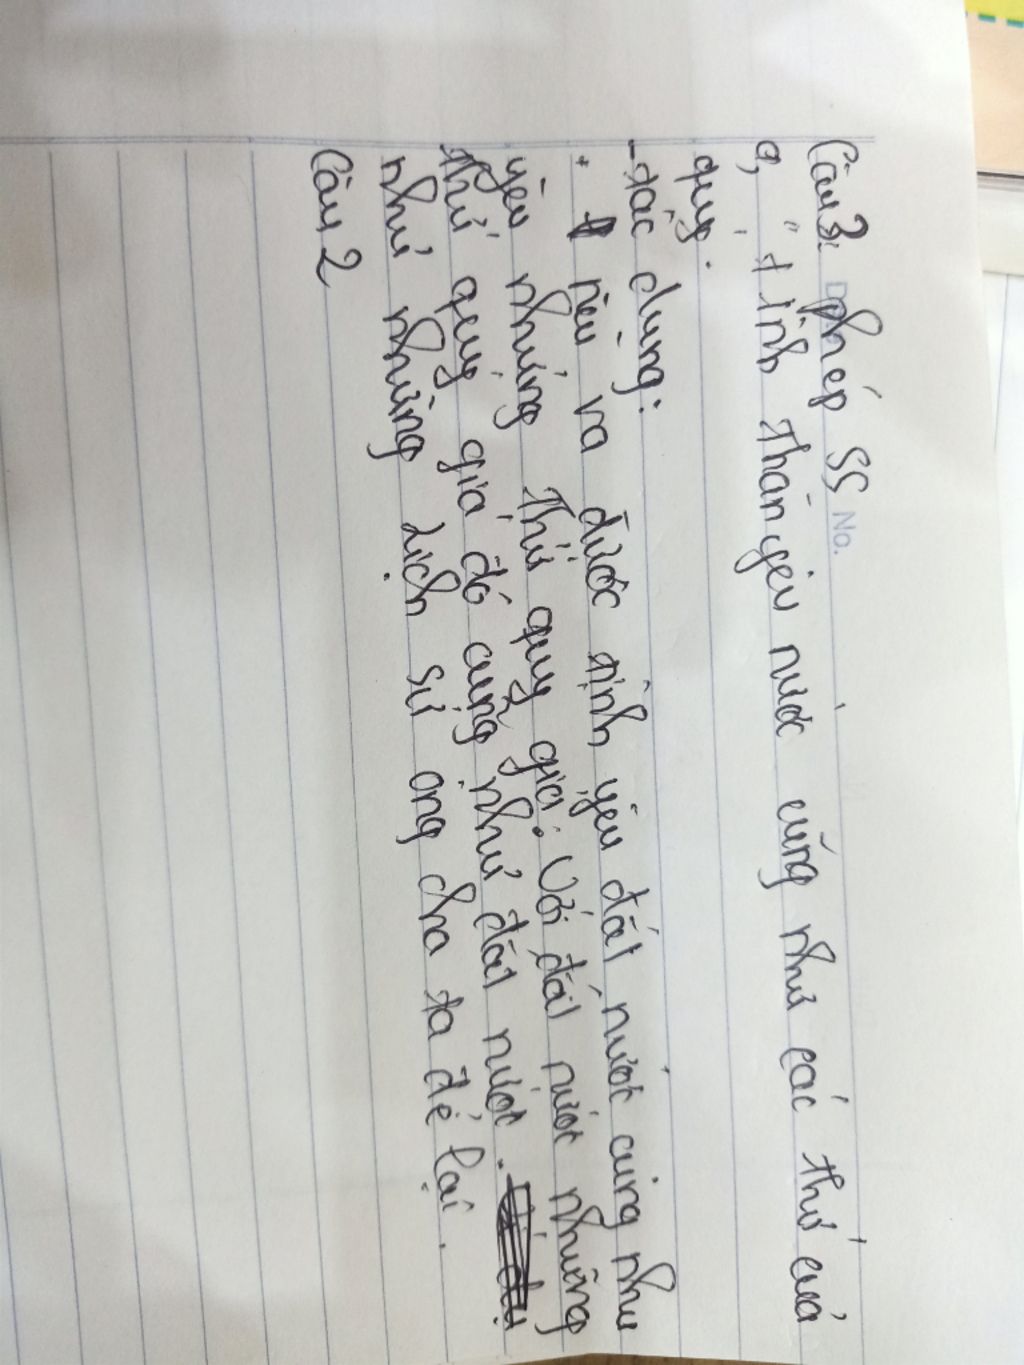 No.
Câu 3: phép SS
a, "tinh thần yêu nước cũng như các thứ của
quý.
- tác dụng:
+ nêu ra được tình yêu đất nước cũng như
yêu những thứ quý giá. Với đất nước những
thứ quý giá đó cũng như đất nước.
như những lịch sử ông cha ta để lại.
Câu 2